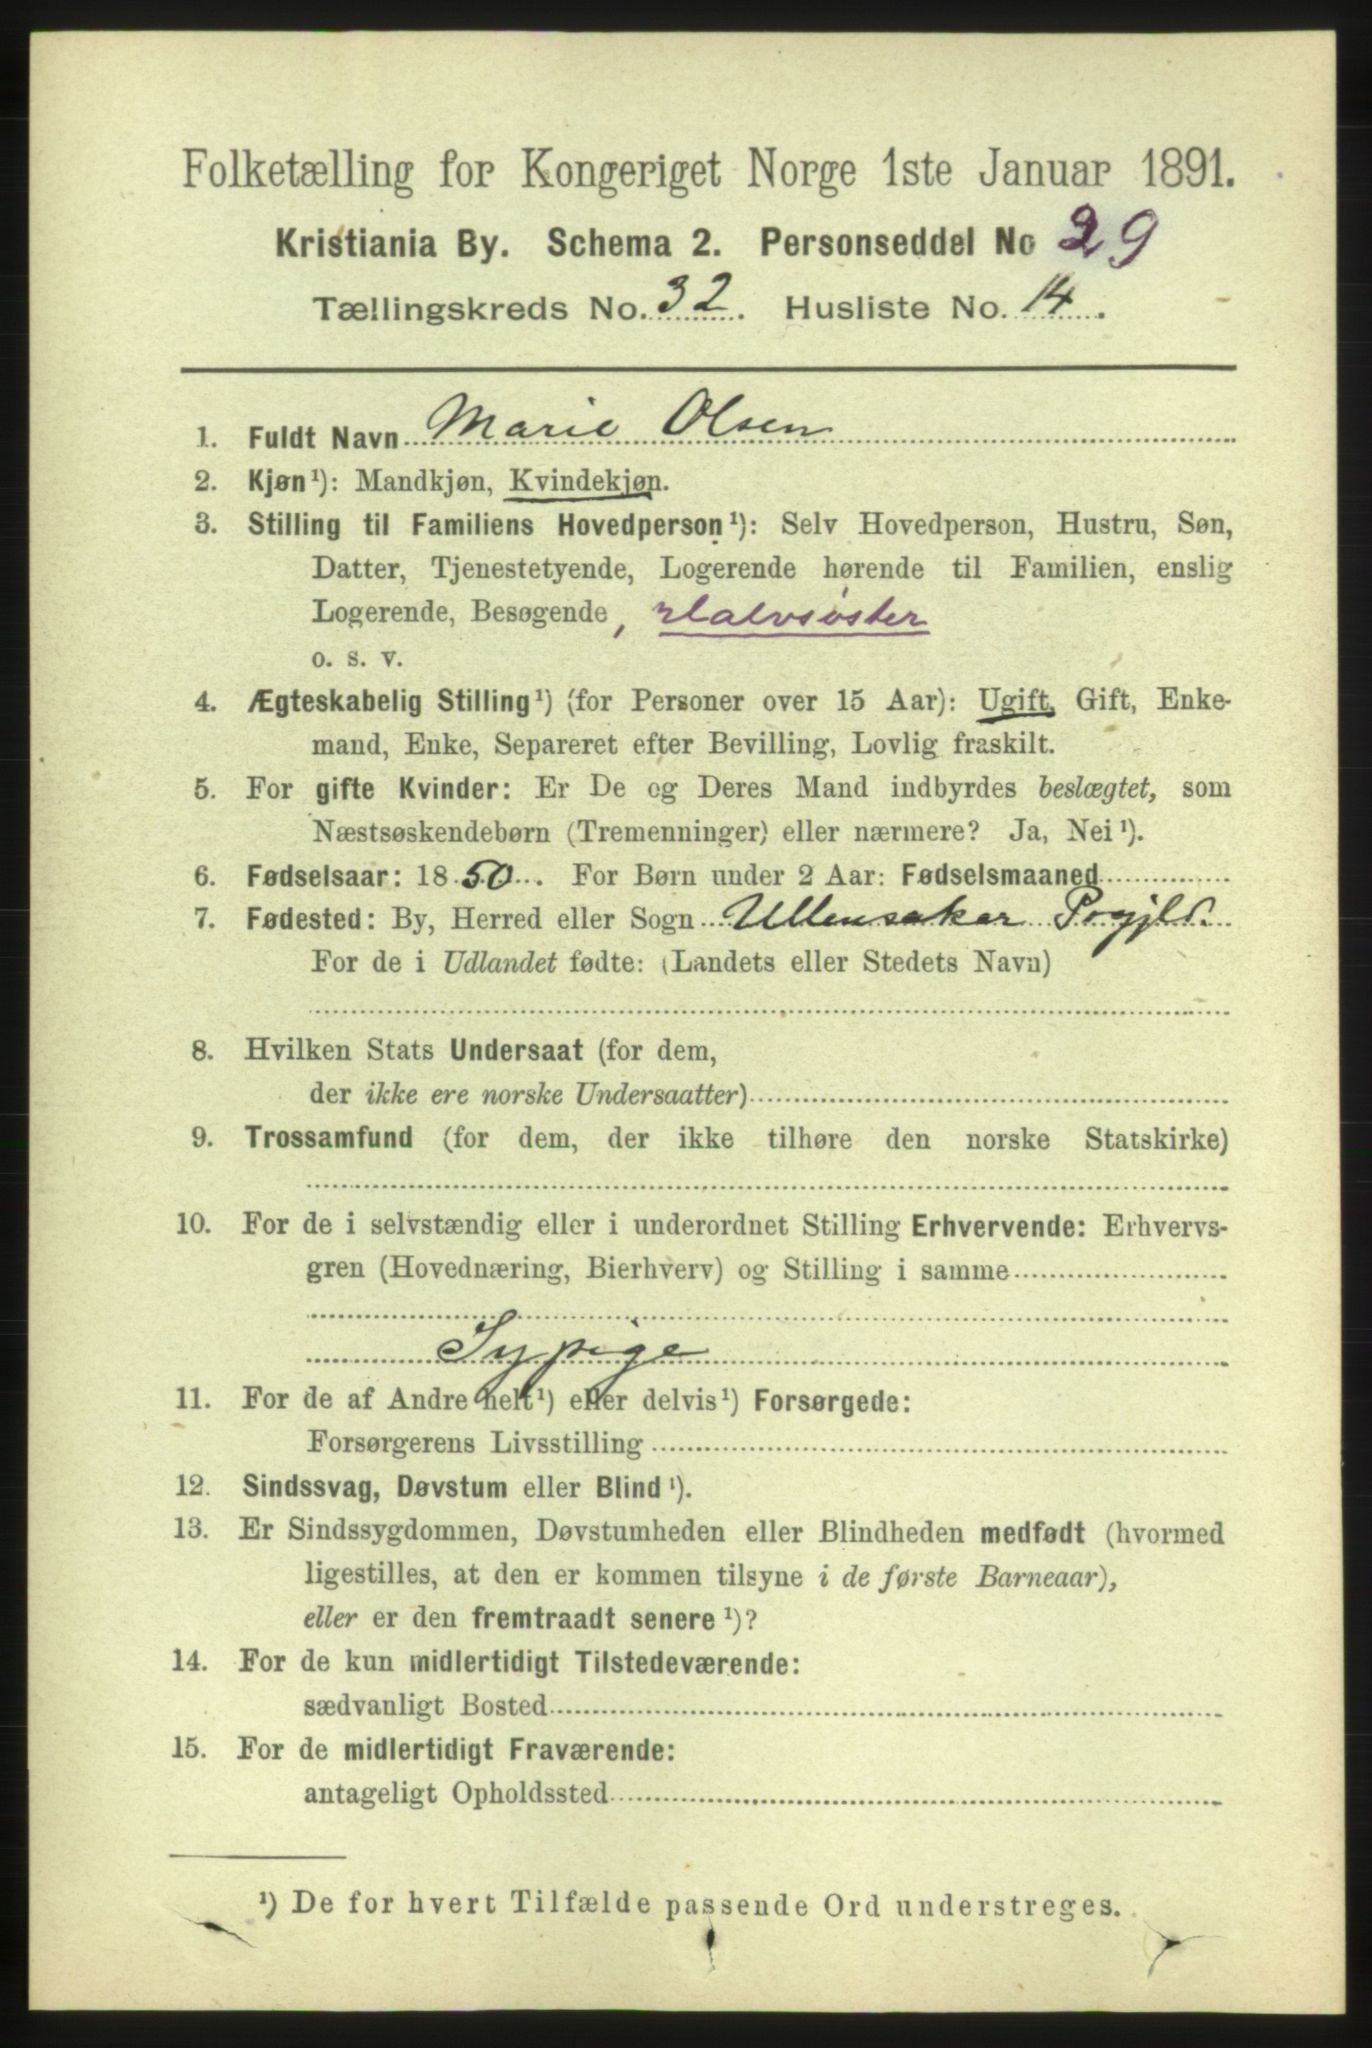 Folketælling for Kongeriget Norge 1ste Januar 1891.
Kristiania By. Schema 2. Personseddel No 29
Tællingskreds No. 32. Husliste No. 14.
1. Fuldt Navn Marie Olsen
2. Kjøn¹): Mandkjøn, Kvindekjøn.
3. Stilling til Familiens Hovedperson¹): Selv Hovedperson, Hustru, Søn,
Datter, Tjenestetyende, Logerende hørende til Familien, enslig
Logerende, Besøgende, Halvsøster
o. s. v.
4. Ægteskabelig Stilling¹) (for Personer over 15 Aar): Ugift, Gift, Enke-
mand, Enke, Separeret efter Bevilling, Lovlig fraskilt.
5. For gifte Kvinder: Er De og Deres Mand indbyrdes beslægtet, som
Næstsøskendebørn (Tremenninger) eller nærmere? Ja, Nei¹).
6. Fødselsaar: 1850. For Børn under 2 Aar: Fødselsmaaned
7. Fødested: By, Herred eller Sogn Ullensaker Prgjld.
For de i Udlandet fødte: (Landets eller Stedets Navn)
8. Hvilken Stats Undersaat (for dem,
der ikke ere norske Undersaatter)
9. Trossamfund (for dem, der ikke tilhøre den norske Statskirke)
10. For de i selvstændig eller i underordnet Stilling Erhvervende: Erhvervs-
gren (Hovednæring, Bierhverv) og Stilling i samme
Sypige
11. For de af Andre helt¹) eller delvis¹) Forsørgede:
Forsørgerens Livsstilling
12. Sindssvag, Døvstum eller Blind¹).
13. Er Sindssygdommen, Døvstumheden eller Blindheden medfødt (hvormed
ligestilles, at den er kommen tilsyne i de første Barneaar),
eller er den fremtraadt senere¹)?
14. For de kun midlertidigt Tilstedeværende:
sædvanligt Bosted
15. For de midlertidigt Fraværende:
antageligt Opholdssted
¹) De for hvert Tilfælde passende Ord understreges.